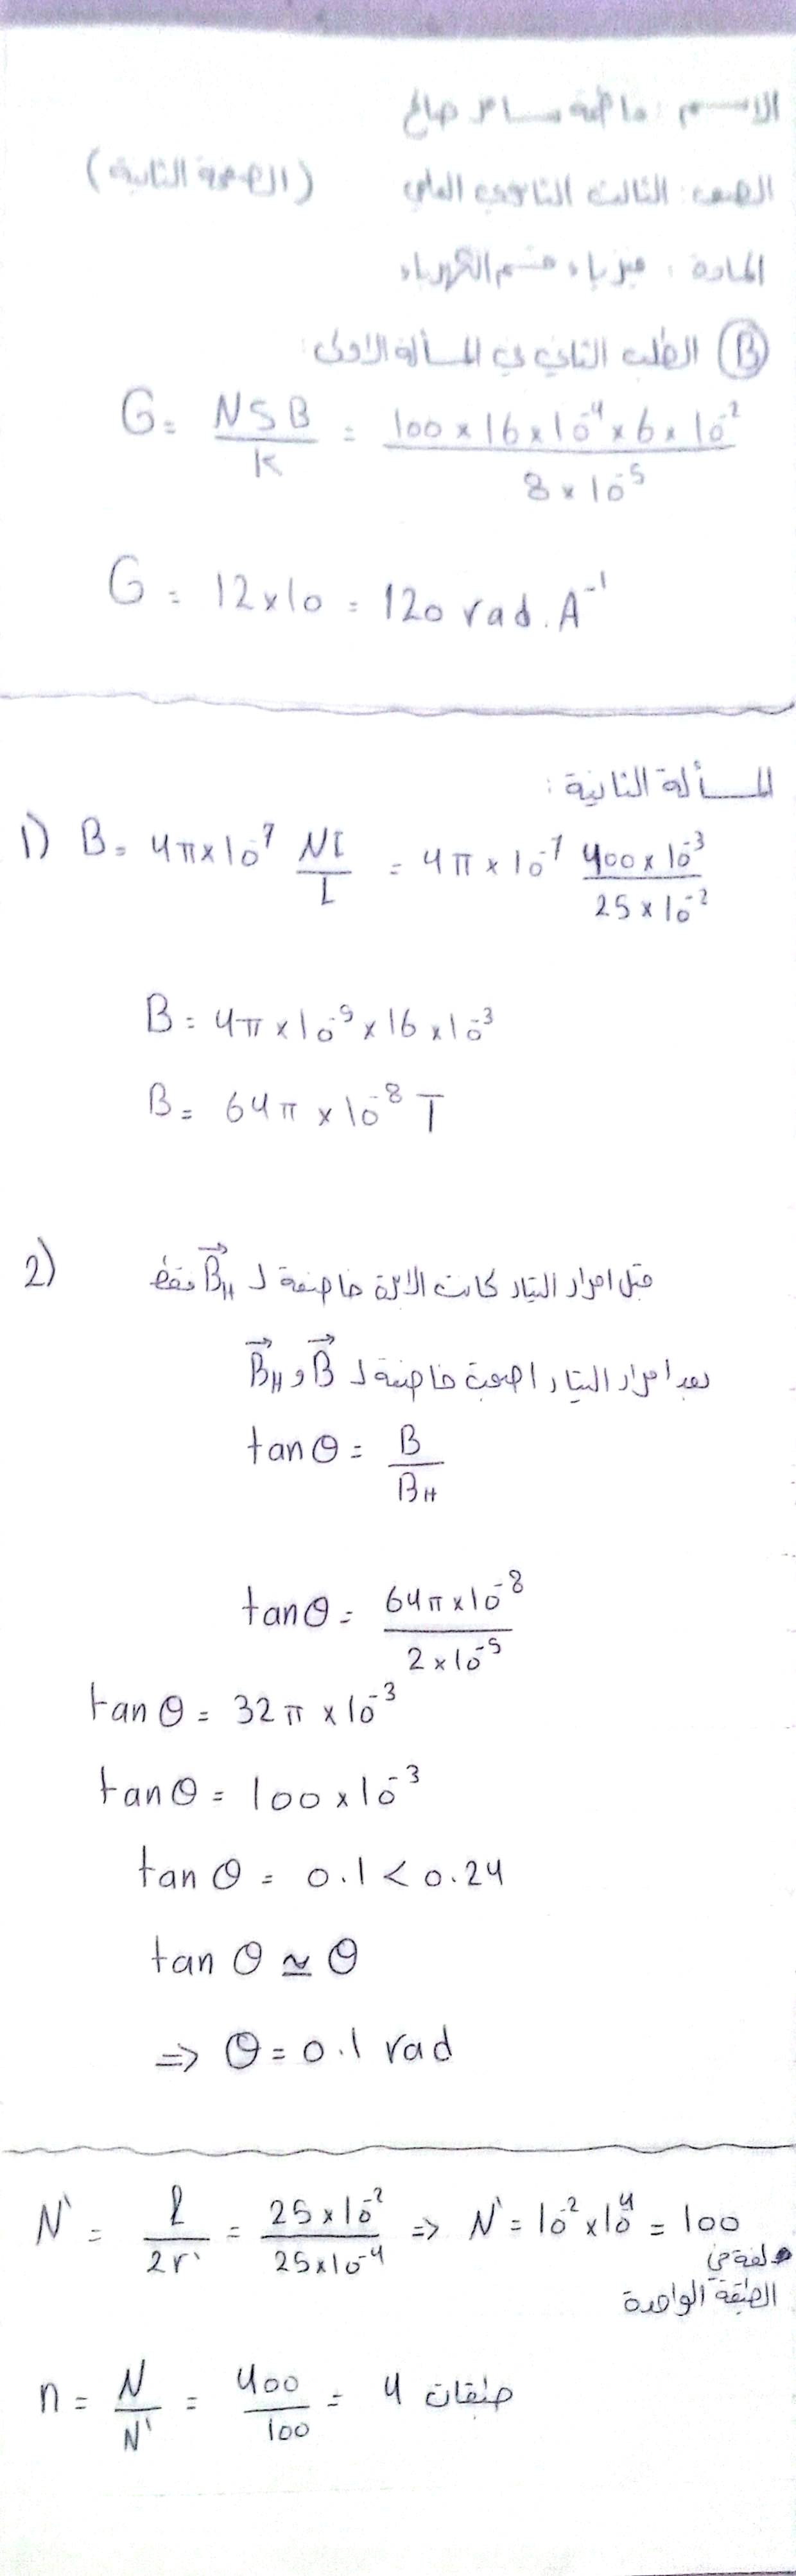 الاسم: فاطمة سامر صالح
الصف: الثالث الثانوي العلمي (الصفحة الثانية)
المادة: فيزياء قسم الكهرباء
B الطلب الثاني في المسألة الأولى:
G = NSB / K = 100 × 16 × 10⁻⁴ × 6 × 10⁻² / 8 × 10⁻⁵
G = 12 × 10 = 120 rad. A⁻¹
المسألة الثانية:
1) B = 4π × 10⁻⁷ NI / L = 4π × 10⁻⁷ 400 × 10⁻³ / 25 × 10⁻²
B = 4π × 10⁻⁵ × 16 × 10⁻³
B = 64π × 10⁻⁸ T
2) قبل امرار التيار كانت الابرة خاضعة لـ B⃗H فقط
بعد امرار التيار اصبحت خاضعة لـ B⃗ و B⃗H
tan θ = B / BH
tan θ = 64π × 10⁻⁸ / 2 × 10⁻⁵
tan θ = 32π × 10⁻³
tan θ = 100 × 10⁻³
tan θ = 0.1 < 0.24
tan θ ≃ θ
⇒ θ = 0.1 rad
N' = ℓ / 2r' = 25 × 10⁻² / 25 × 10⁻⁴ ⇒ N' = 10⁻² × 10⁴ = 100
لفة في
الطبقة الواحدة
n = N / N' = 400 / 100 = 4 طبقات